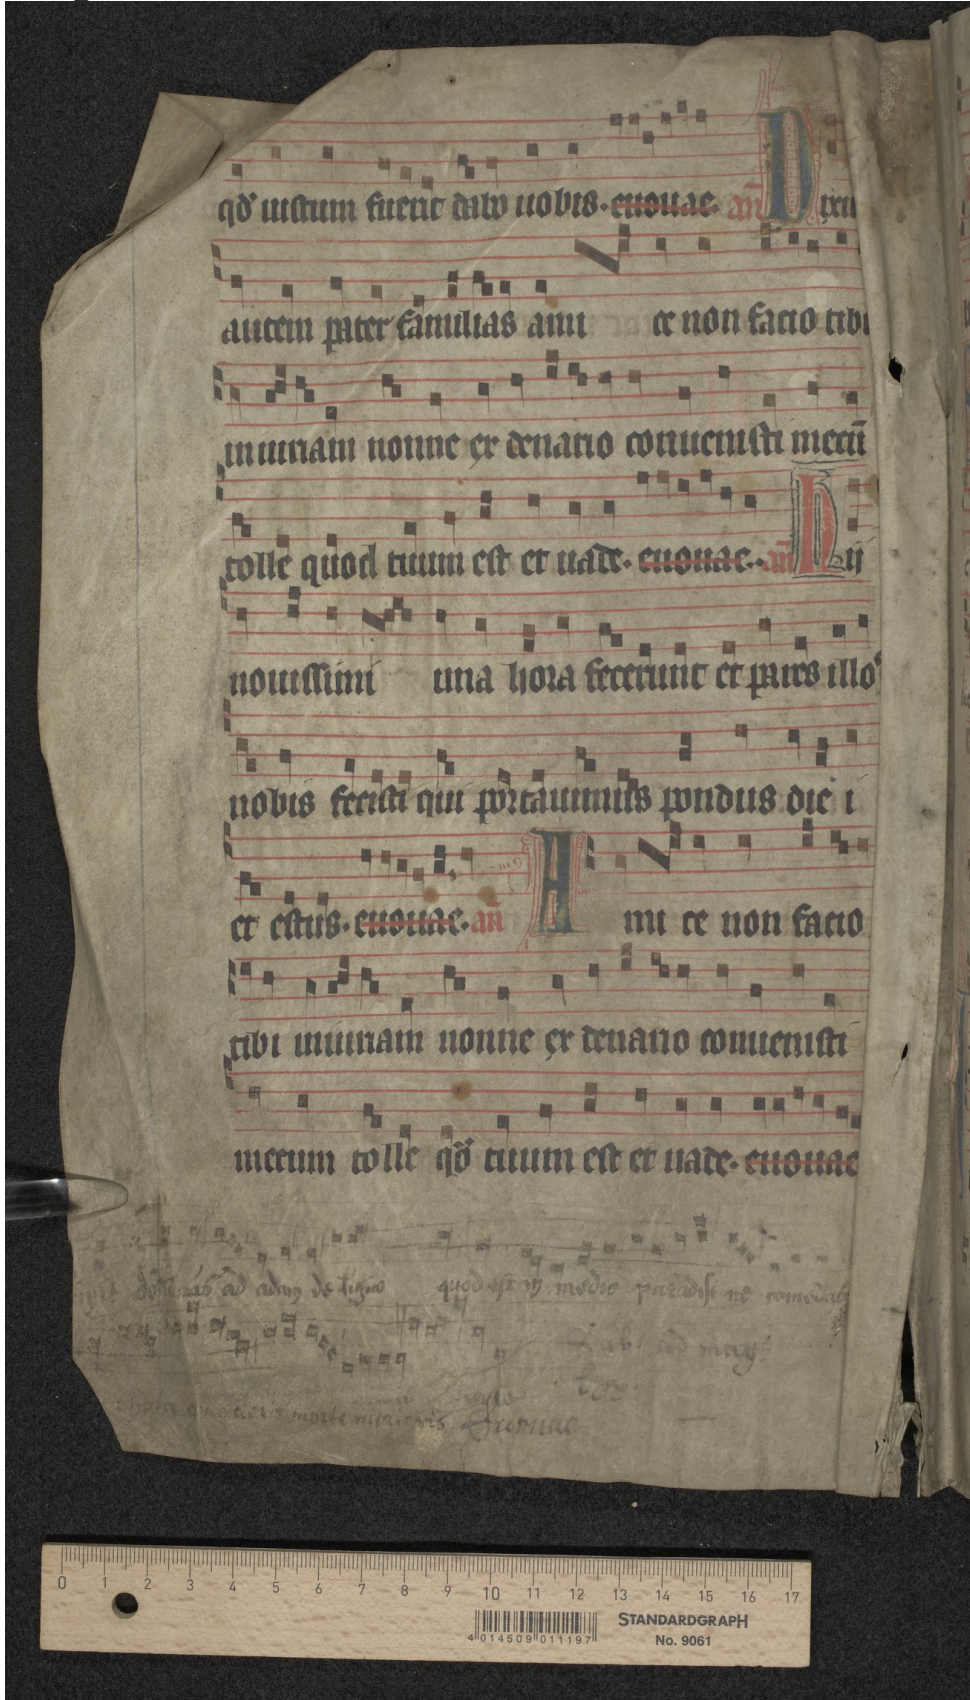 qd iustum fuerit dabo uobis. euouae. an Dixit
autem pater familias ami ce non facio tibi
iniuriam nonne ex denario conuenisti mecū
tolle quod tuum est et uade. euouae. an Hii
nouissimi una hora fecerunt et pares illos
nobis fecisti qui portauimus pondus diei
et estus. euouae. an Ami ce non facio
tibi iniuriam nonne ex denario conuenisti
mecum tolle qd tuum est et uade. euouae
ad adam de ligno quod est in medio paradisi ne comedas
hora morte morieris
0 1 2 3 4 5 6 7 8 9 10 11 12 13 14 15 16 17
4 014509 011197
STANDARDGRAPH
No. 9061